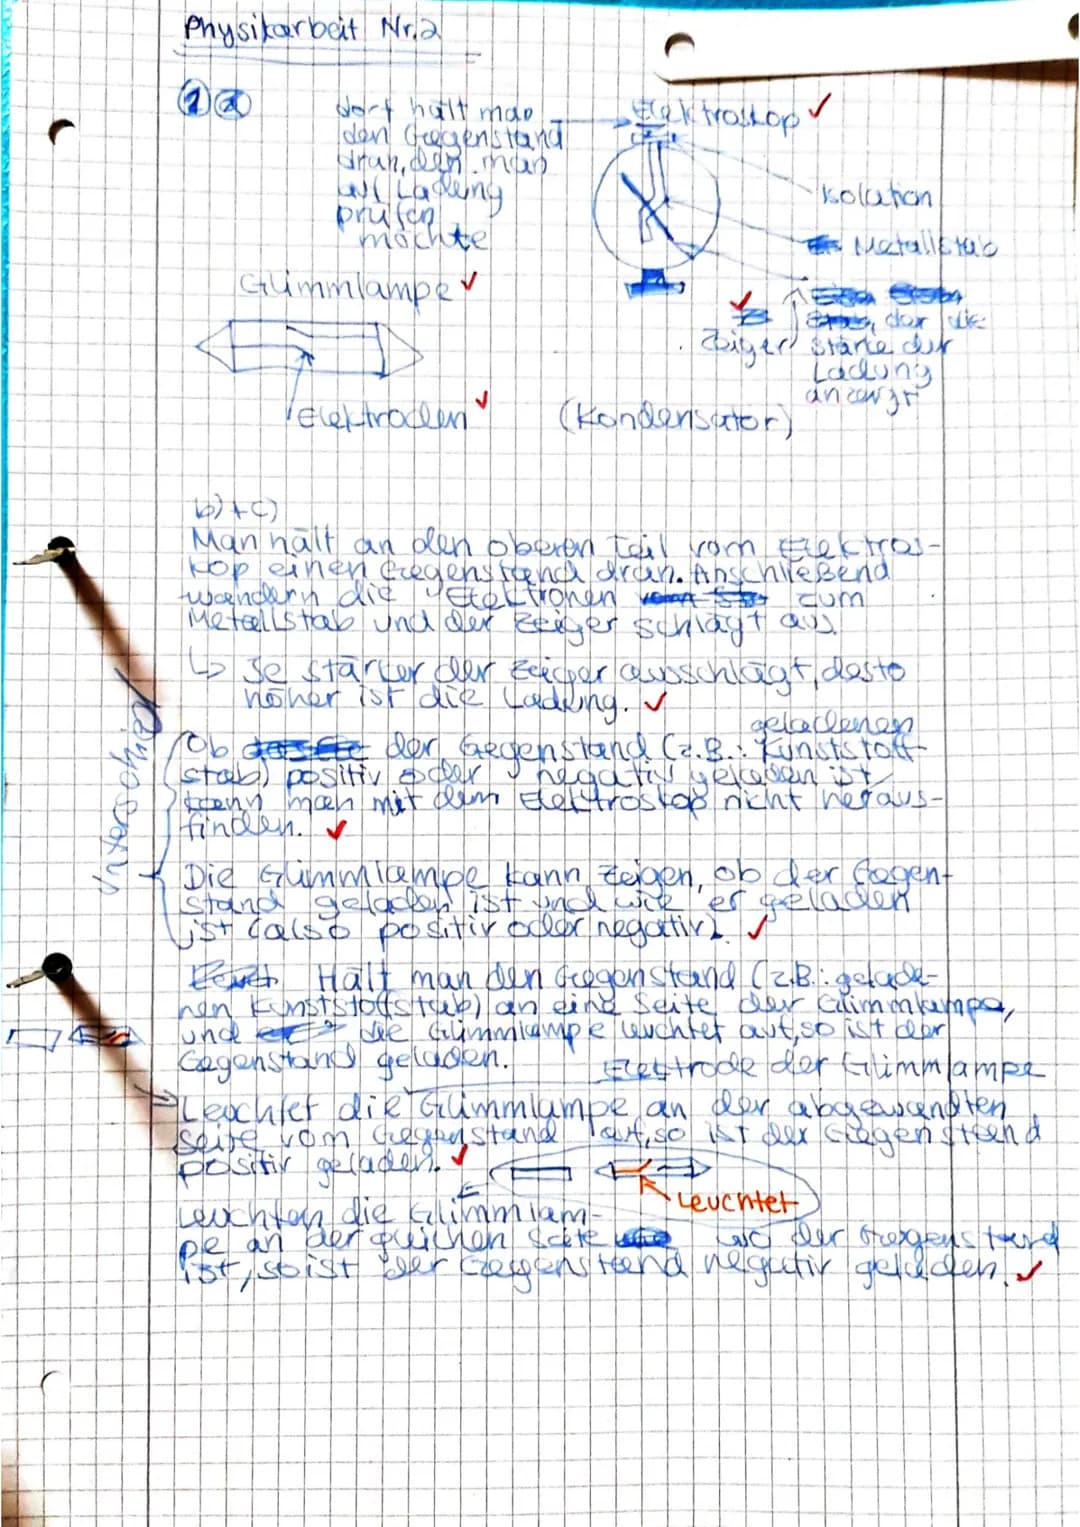 Physikarbeit Nr.2
1 a
dort hält man
den Gegenstand
dran, den man
auf Ladung
prüfen
möchte
Elektroskop
Isolation
Metallstab
Zeiger
, der die
Stärke der
Ladung
anzeigt
Glimmlampe
Elektroden
(Kondensator)
b) + c)
Man hält an den oberen Teil vom Elektros-
kop einen Gegenstand dran. Anschließend
wandern die Elektronen zum
Metallstab und der Zeiger schlägt aus
↳ Je stärker der Zeiger ausschlägt, desto
höher ist die Ladung.
Unterschied
geladenen
Ob der Gegenstand (z.B.: Kunststoff-
stab) positiv oder negativ geladen ist
kann man mit dem Elektroskop nicht heraus-
finden.
Die Glimmlampe kann zeigen, ob der Gegen-
stand geladen ist und wie er geladen
ist (also positiv oder negativ).
Hält man den Gegenstand (z.B.: gelade-
nen Kunststoffstab) an eine Seite der Glimmlampe,
und die Glimmlampe leuchtet auf, so ist der
Gegenstand geladen.
Elektrode der Glimmlampe
Leuchtet die Glimmlampe an der abgewandten
Seite vom Gegenstand auf, so ist der Gegenstand
positiv geladen.
Leuchtet
Leuchten die Glimmlam-
pe an der gleichen Seite wo der Gegenstand
ist, so ist der Gegenstand negativ geladen.